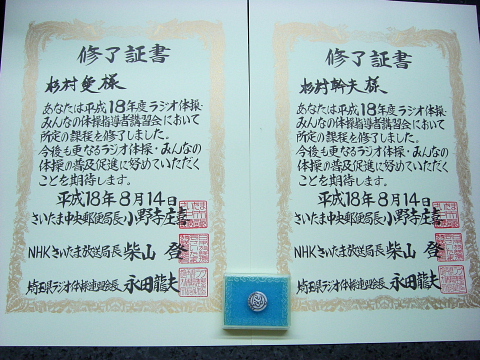 修了証書
杉村 愛 様
あなたは平成18年度ラジオ体操・
みんなの体操指導者講習会において
所定の課程を修了しました。
今後も更なるラジオ体操・みんなの
体操の普及促進に努めていただく
ことを期待します。
平成18年8月14日
さいたま中央郵便局長 小野寺庄喜
NHKさいたま放送局長 柴山 登
埼玉県ラジオ体操連盟会長 永田龍夫
修了証書
杉村幹夫 様
あなたは平成18年度ラジオ体操・
みんなの体操指導者講習会において
所定の課程を修了しました。
今後も更なるラジオ体操・みんなの
体操の普及促進に努めていただく
ことを期待します。
平成18年8月14日
さいたま中央郵便局長 小野寺庄喜
NHKさいたま放送局長 柴山 登
埼玉県ラジオ体操連盟会長 永田龍夫